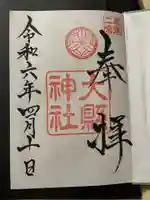 奉拝
大縣
神社
令和六年四月十日